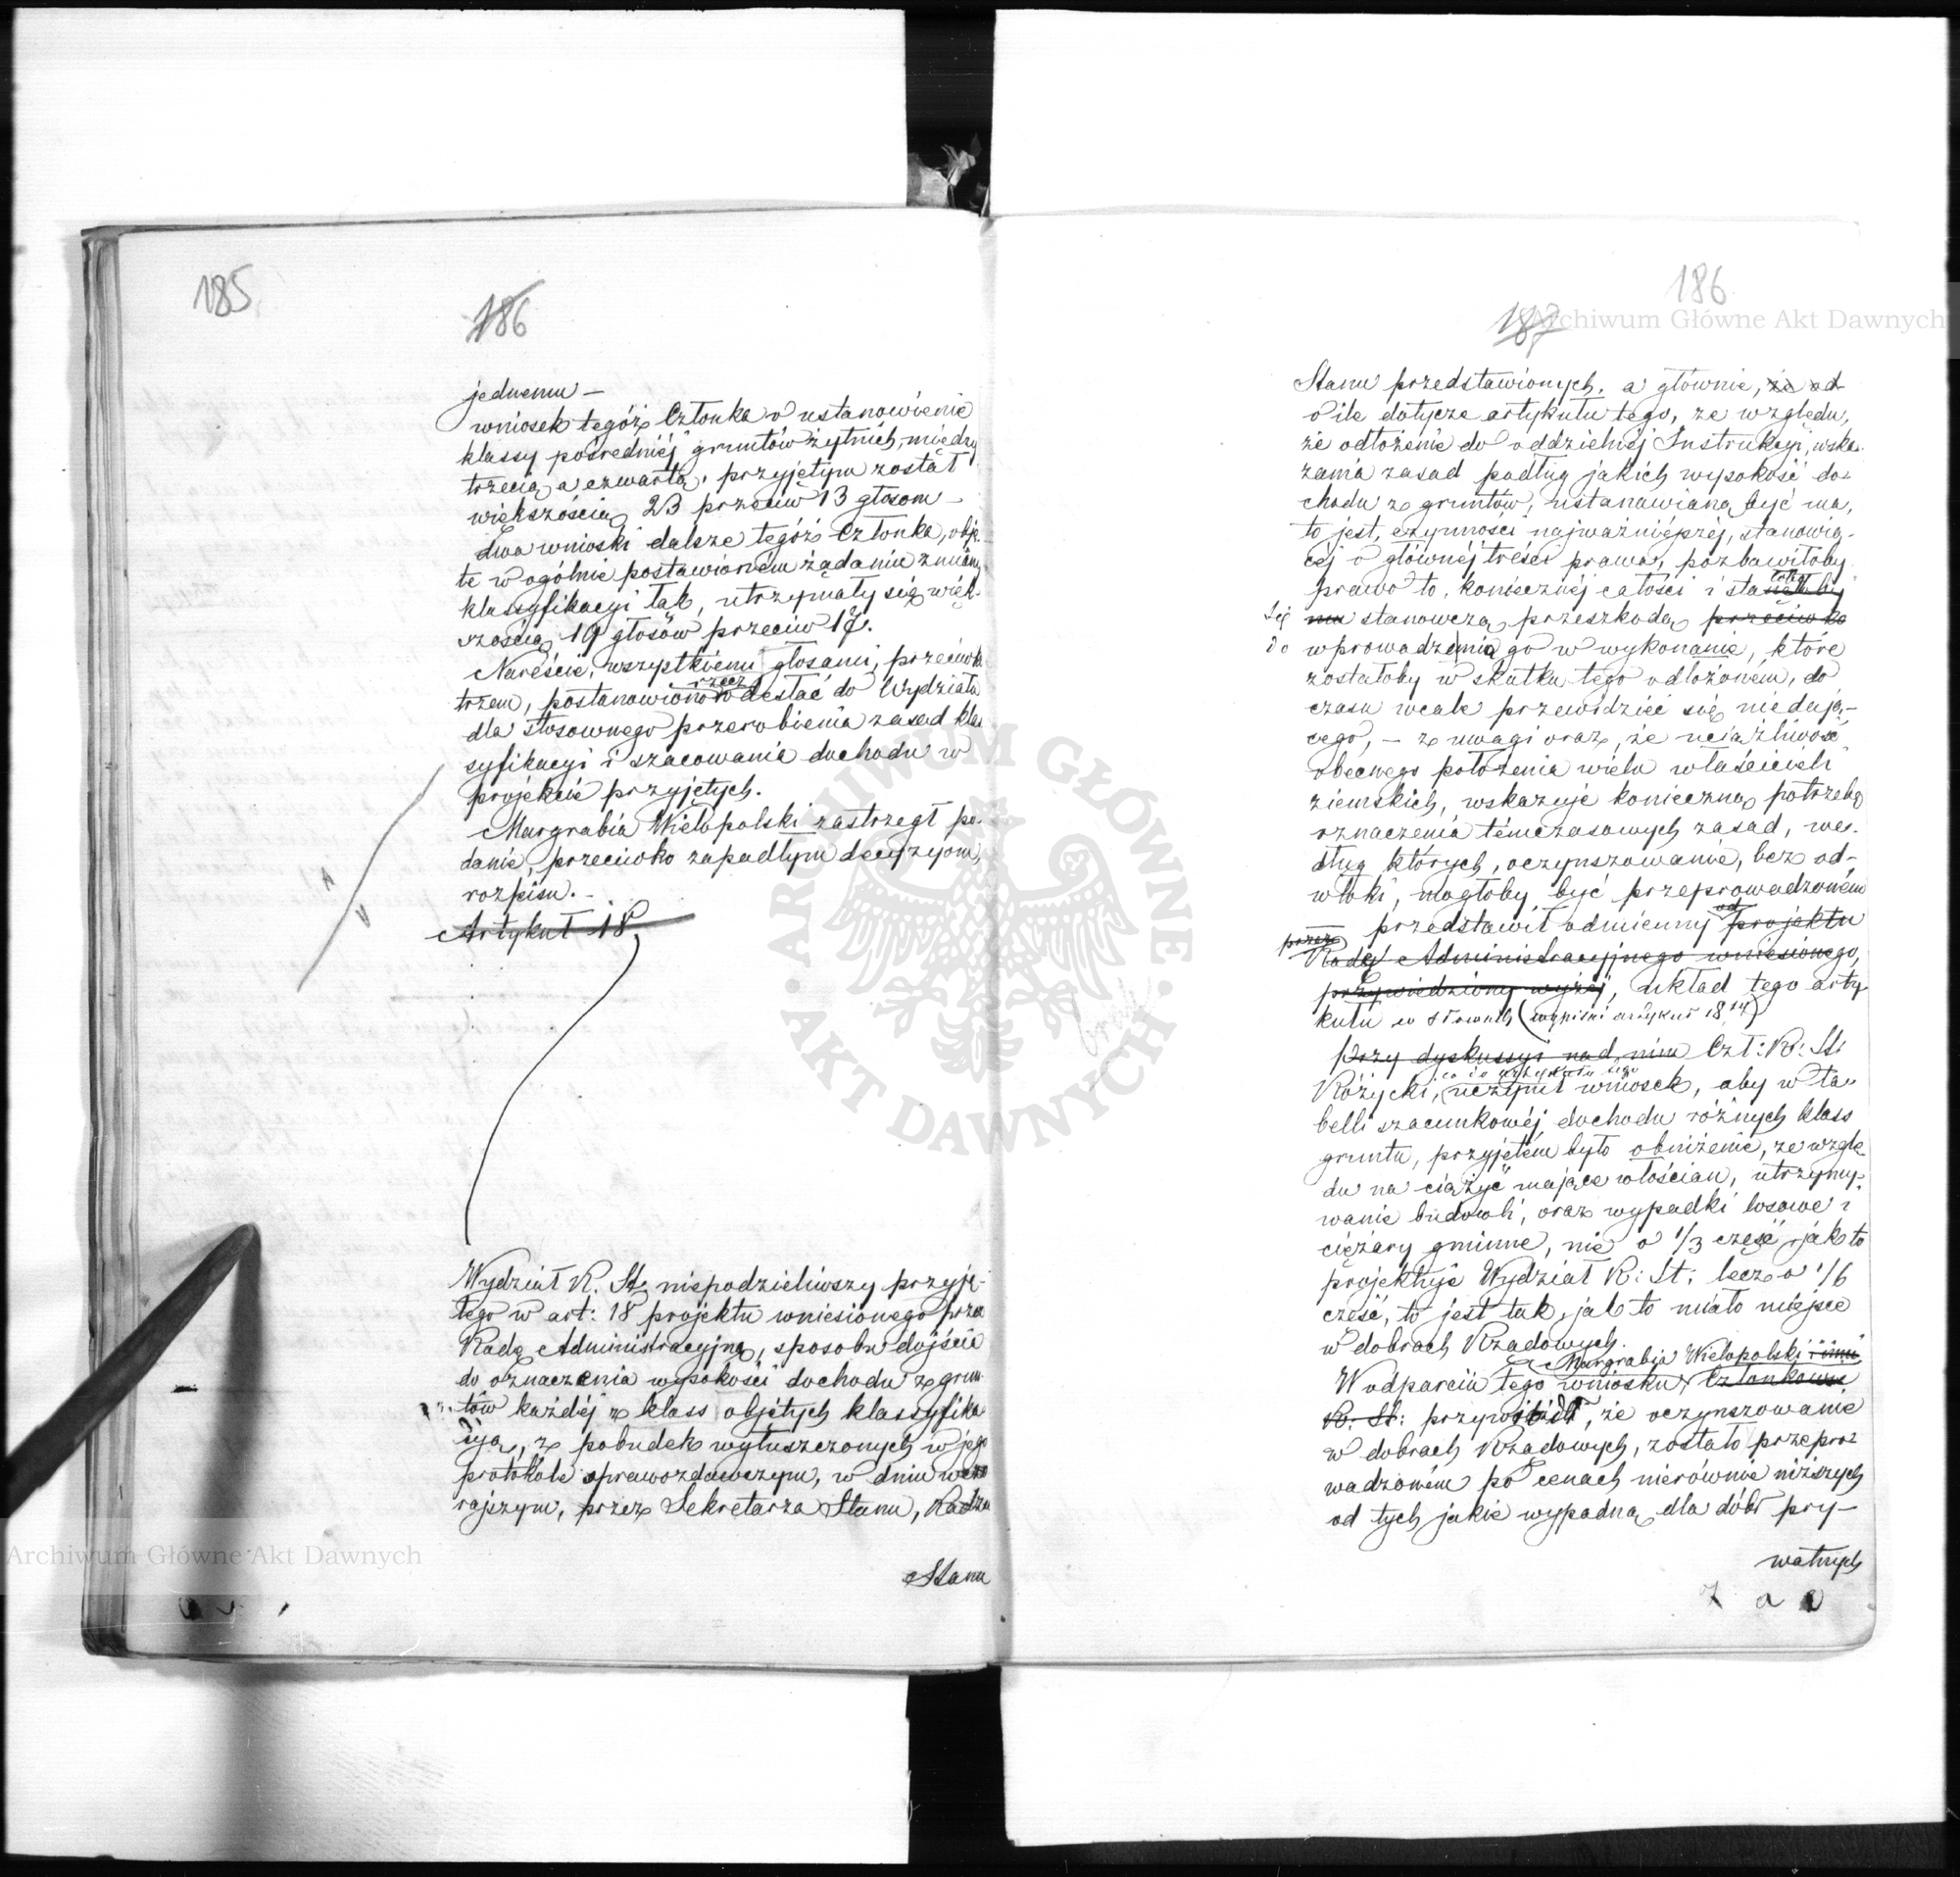 185
186
jednemu —
wniosek tegóż Członka o ustanowienie
klassy pośredniéj gruntów żytnich, między
trzecią a czwartą, przyjętym został
większością 23 przeciw 13 głosom —
Dwa wnioski dalsze tegóż Członka, obję-
te w ogólnie postawioném żądaniu zmiany
klassyfikacyi tak, utrzymały się więk-
szością 19 głosów przeciw 17.
Nareście, wszystkiemi głosami, przeciwko
trzem, postanowiono rzecz odesłać do Wydziału
dla stosownego przerobienia zasad klas
syfikacyi i szacowania dochodu w
projekcie przyjętych.
Margrabia Wielopolski zastrzegł po-
danie, przeciwko zapadłym decyzyom,
rozpisu. —
Artykuł 18.
Wydział R. St. niepodzieliwszy przyję-
tego w art: 18 projektu wniesionego przez
Radę Administracyjną, sposobu dojścia
do oznaczenia wysokości dochodu z grun-
tów każdéj z klass objętych klassyfika
cyą, z pobudek wyłuszczonych w jego
protokóle sprawozdawczym, w dniu wczo
rajszym, przez Sekretarza Stanu, Radzie
Stanu
186
187
Stanu przedstawionych, a głównie, że od-
o ile dotycze artykułu tego, ze względu,
że odłożenie do oddzielnéj Instrukcyi, wska-
zania zasad podług jakich wysokość do-
chodu z gruntów, ustanawianą być ma,
to jest, czynności najważniéjszéj, stanowią-
céj o głównéj treści prawa, pozbawiłoby
prawo to, koniecznéj całości i stanęłoby
się mu stanowczą przeszkodą przeciwko
do wprowadzenia go w wykonanie, które
zostałoby w skutku tego odłożoném, do
czasu wcale przewidzieć się niedają-
cego, — z uwagi oraz, że uciążliwość
obecnego położenia wielu właścicieli
ziemskich, wskazuje konieczną potrzebę
oznaczenia témczasowych zasad, we-
dług których, oczynszowanie, bez od-
włoki, mogłoby być przeprowadzoném
przedstawił odmienny od projektu
przez Radę Administracyjnego wniesionego,
przywiedziony wyżéj, układ tego arty
kułu w słowach (wypisać artykuł 18ty)
Przy dyskussyi nad nim Czł: R: St:
co do artykułu tego
Różycki, uczynił wniosek, aby w ta-
belli szacunkowéj dochodu różnych klass
gruntu, przyjętém było obniżenie, ze wzglę-
du na ciążyć mające włościan, utrzymy-
wanie budowli, oraz wypadki losowe i
ciężary gminne, nie o 1/3 część jak to
projektuje Wydział R: St: lecz o 1/6
część, to jest tak, jak to miało miejsce
w dobrach Rządowych.
Margrabia Wielopolski i inni
W odparciu tego wniosku, Członkowie
R: St: przywiódł, że oczynszowanie
w dobrach Rządowych, zostało przepro-
wadzoném po cenach nierównie niższych
od tych jakie wypadną dla dóbr pry-
watnych
Archiwum Główne Akt Dawnych
Archiwum Główne Akt Dawnych
ARCHIWUM GŁÓWNE
AKT DAWNYCH